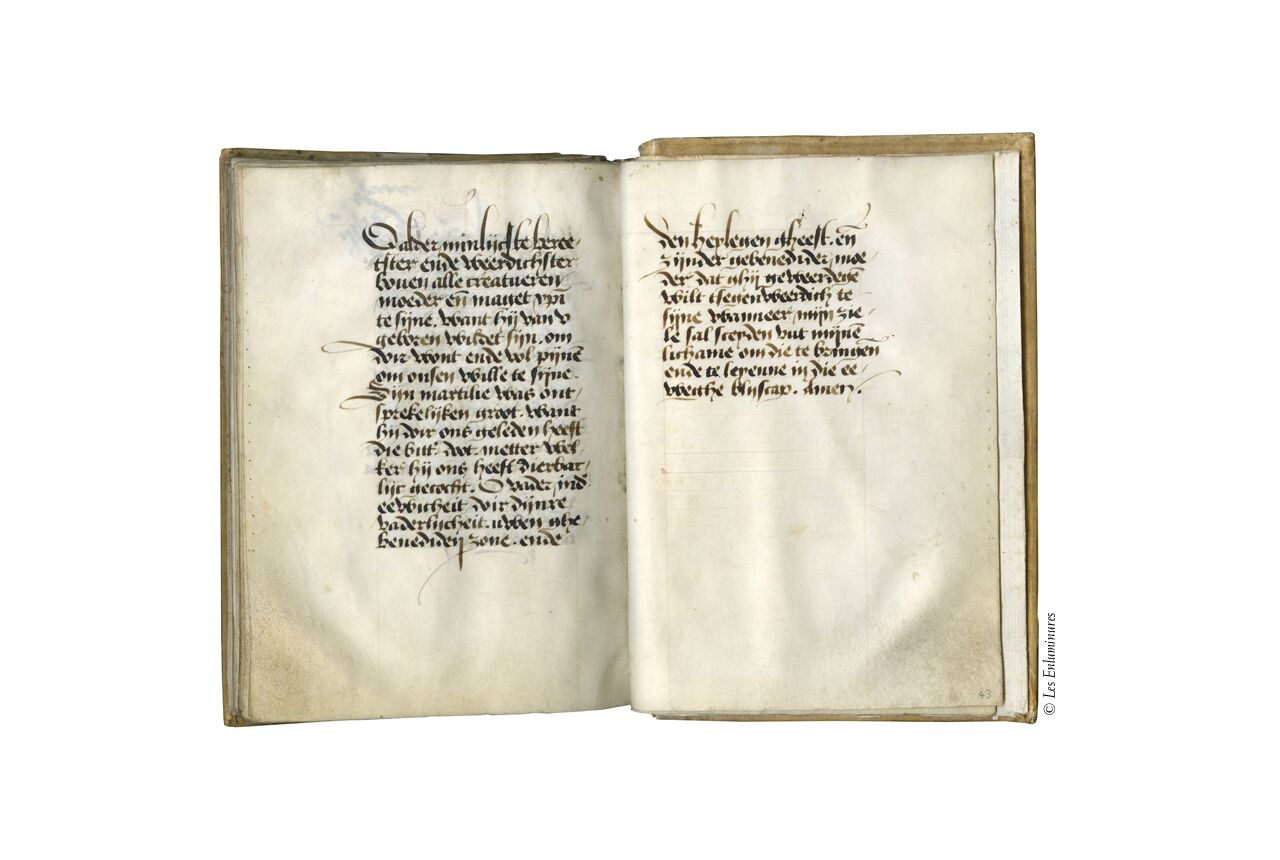 O alder minlijcste beree/
tster ende weerdichster
bouen alle creatueren
moeder en̄ maget xp̄i
te sijne. want hij van v
geboren wildet sijn. om
doir wont ende vol pijnē
om onsen wille te sijne.
Sijn martilie was ont/
sprekelijken groot. want
hij doir ons geleden heeft
die bitt' doot. metter wel/
ker hij ons heeft dierbar/
lijc gecocht. O vader, ind'
eewicheit doir dijnre
vaderlijcheit. uwen ghe/
benedidē zone. ende
den heyleuen gheest. en̄
zijnder gebenedider, moe/
der dat ghij geweerdegē
wilt tsegenweerdich te
sijne wanneer, mijn zie/
le sal sceyden vut mijnē
lichame om die te bringen
ende te leyenne in die ee/
weghe blijscap. Amen.
43
© Les Enluminures